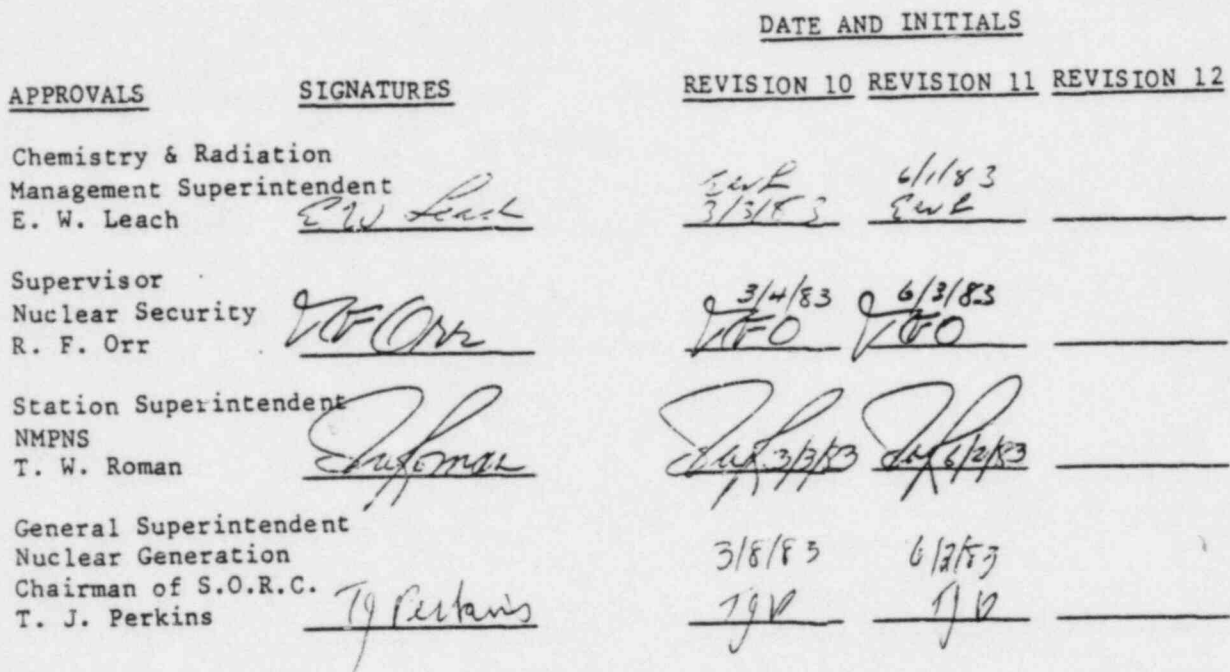 DATE AND INITIALS
APPROVALS SIGNATURES REVISION 10 REVISION 11 REVISION 12
Chemistry & Radiation
Management Superintendent
E. W. Leach
E W Leach
EWL
3/3/83
6/1/83
EWL
Supervisor
Nuclear Security
R. F. Orr
RF Orr
3/4/83
RFO
6/3/83
RFO
Station Superintendent
NMPNS
T. W. Roman
TW Roman
3/3/83
6/2/83
General Superintendent
Nuclear Generation
Chairman of S.O.R.C.
T. J. Perkins
TJ Perkins
3/8/83
TJP
TJP